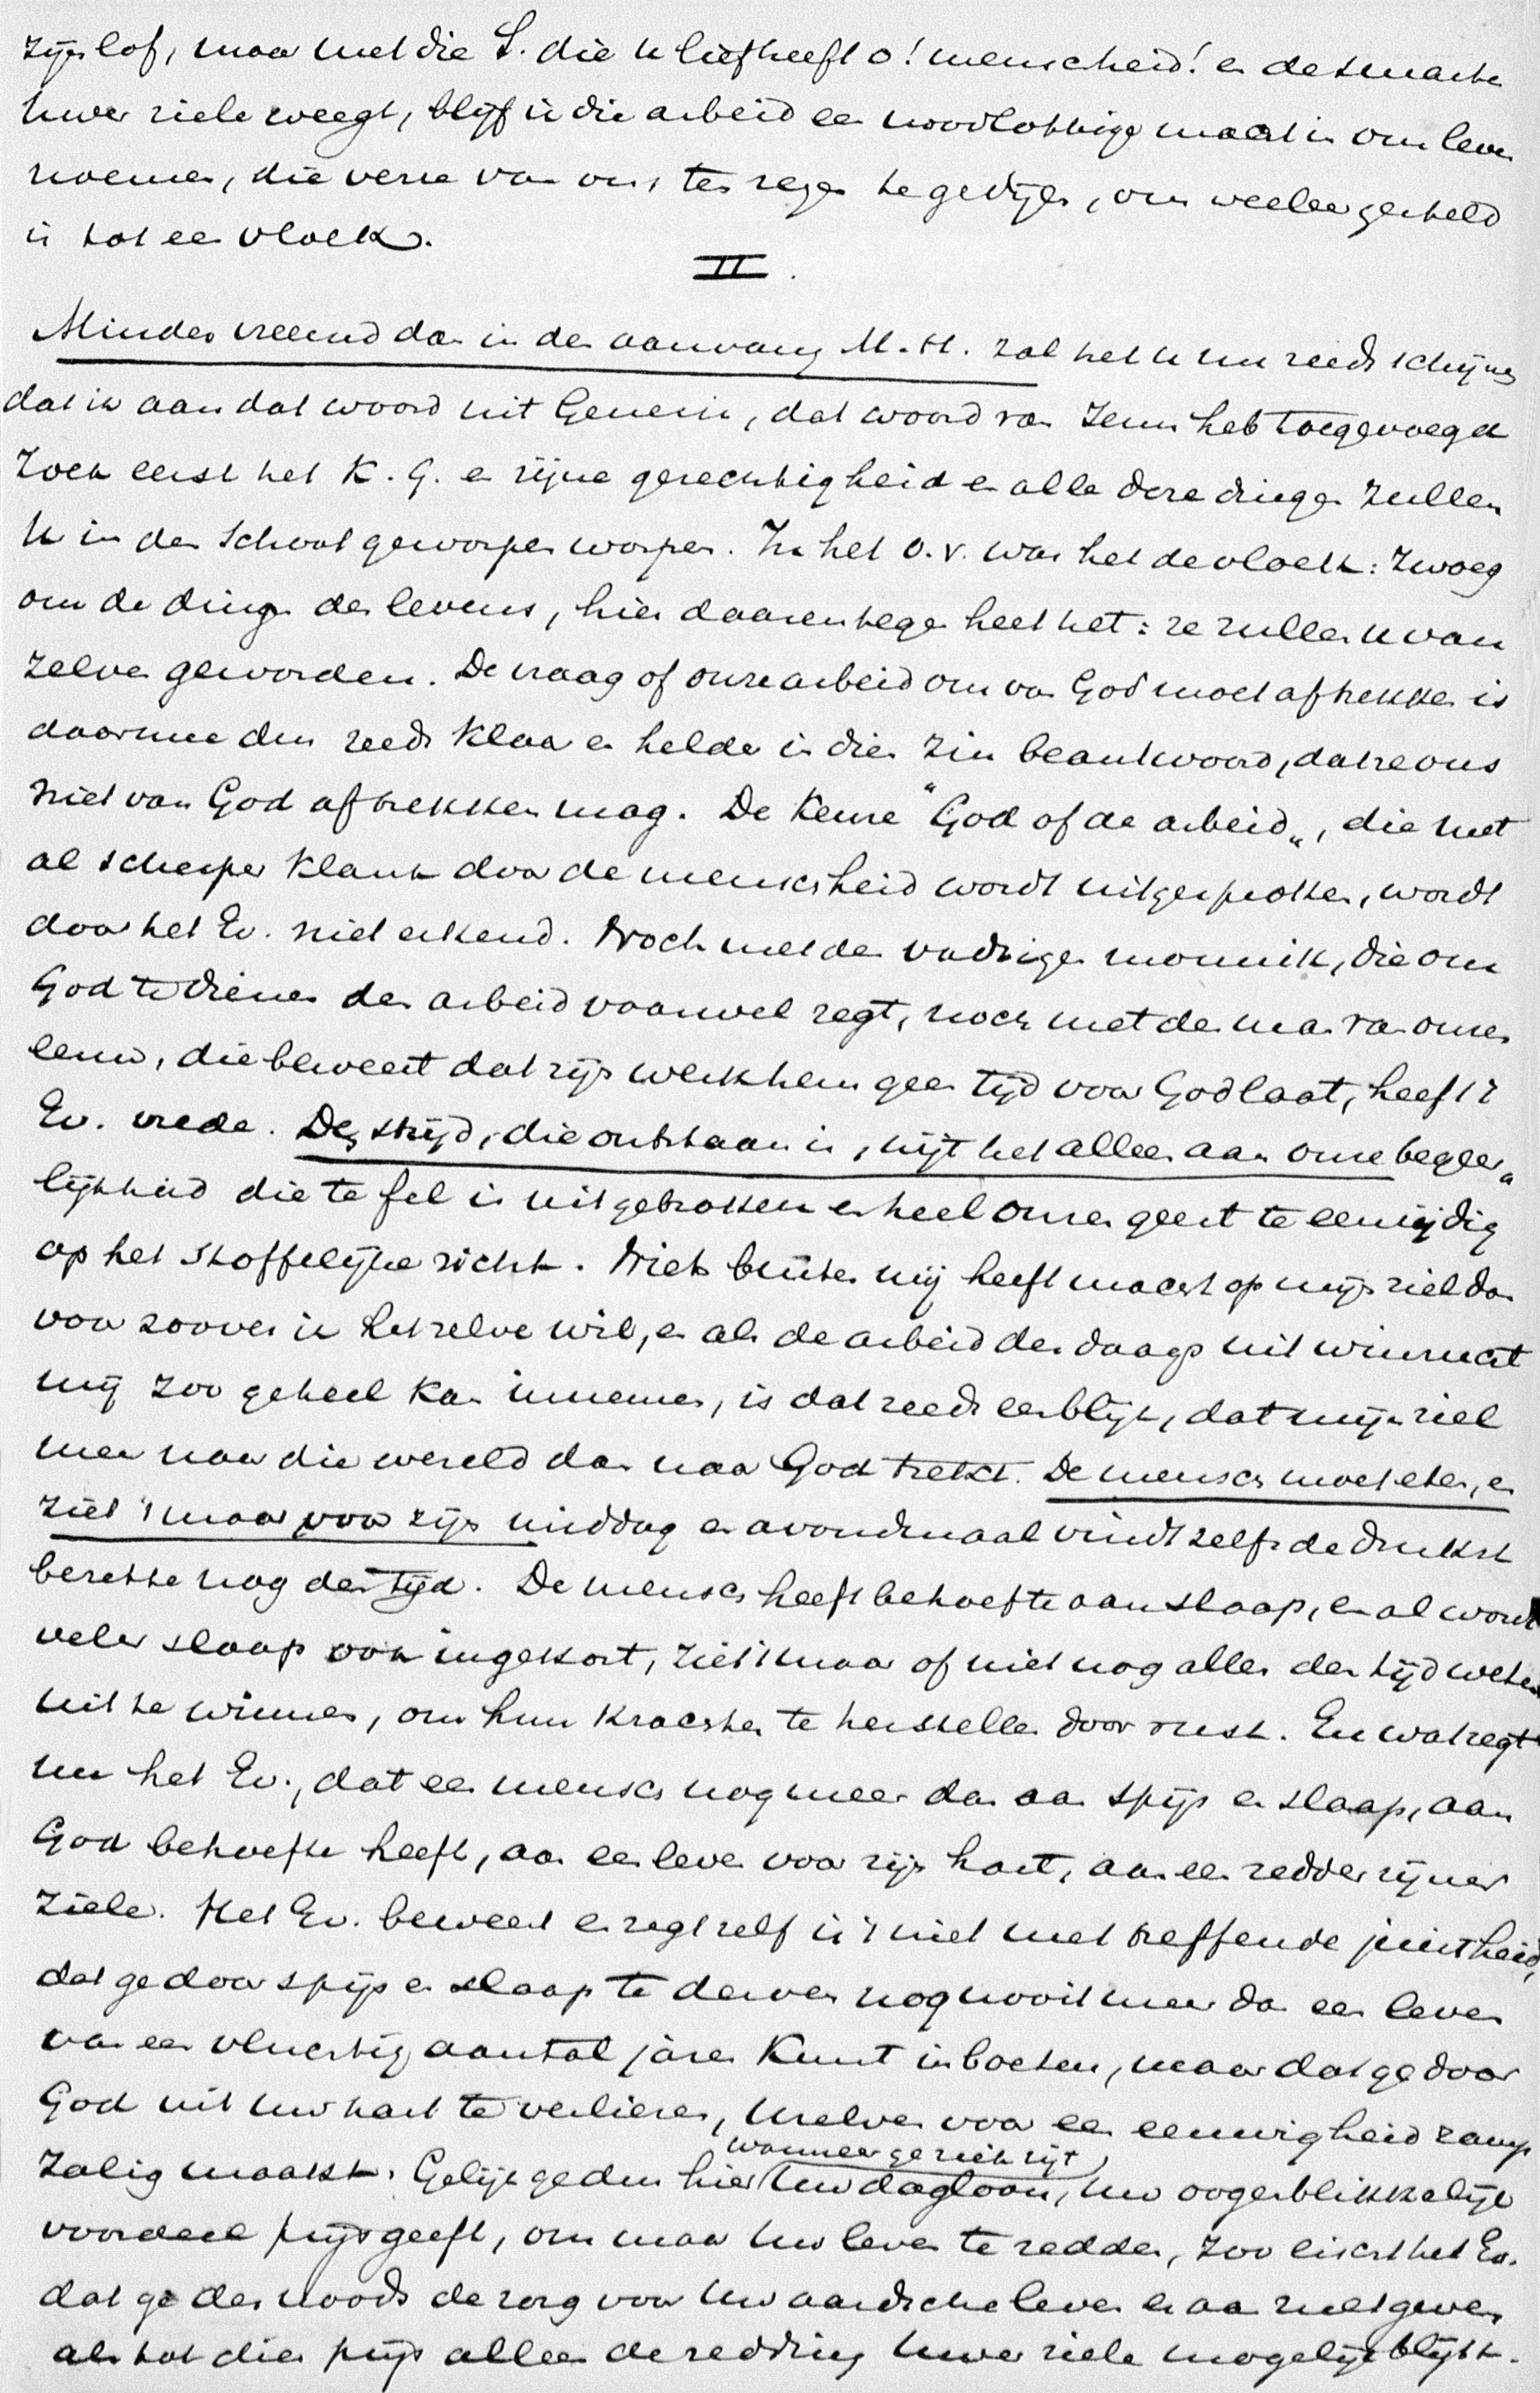 zijn lof, maar met die S. die u liefheeft o! menscheid! en de smarte
uwer ziele weegt, blijf ik die arbeid een noodlottige macht in ons leven
noemen, die verre van ons ten zegen te gedijen, ons veeleer gesteld
is tot een vloek.
II.
Minder vreemd dan in den aanvang M.H. zal het u nu reeds schijnen
dat ik aan dat woord uit Genesis, dat woord van Jezus heb toegevoegd
Zoek eerst het K.G. en zijne gerechtigheid en alle deze dingen zullen
U in den schoot geworpen worpen. In het O.V. was het de vloek: Zwoeg
om de dingen des levens, hier daarentegen heet het: ze zullen u van
zelve geworden. De vraag of onze arbeid ons van God moet aftrekken is
daarmee dus reeds klaar en helder in dien zin beantwoord, dat ze ons
niet van God aftrekken mag. De keuze "God of de arbeid", die met
al scherper klank door de menscheid wordt uitgesproken, wordt
door het Ev. niet erkend. Noch met den vadsigen monnik, die om
God te dienen den arbeid vaarwel zegt, noch met den man van onze
eeuw, die beweert dat zijn werk hem geen tijd voor God laat, heeft 't
Ev. vrede. De strijd, die ontstaan is, wijt het alleen aan onze begeer„
lijkheid die te fel is uitgebroken en heel onzen geest te eenzijdig
op het stoffelijke richt. Niets buiten mij heeft macht op mijn ziel dan
voor zoover ik het zelve wil, en als de arbeid des daags uit winzucht
mij zoo geheel kan innemen, is dat reeds een blijk, dat mijn ziel
meer naar die wereld dan naar God trekt. De mensch moet eten, en
ziet 's maar voor zijn middag en avondmaal vindt zelfs de drukst
bezette nog den tijd. De mensch heeft behoefte aan slaap, en al wordt
veler slaap ook ingekort, ziet 's maar of niet nog allen den tijd weten
uit te winnen, om hun krachten te herstellen door rust. En wat zegt
nu het Ev., dat een mensch nog meer dan aan spijs en slaap, aan
God behoefte heeft, aan een leven voor zijn hart, aan een redder zijner
ziele. Het Ev. beweert en zegt zelf is 't niet met treffende juistheid,
dat ge door spijs en slaap te derven nog nooit meer dan een leven
van een vluchtig aantal jaren kunt inboeten, maar dat ge door
God uit uw hart te verliezen, uzelven voor een eeuwigheid ramp
zalig maakt. Gelijk ge dus hier wanneer ge ziek zijt uw dagloon, uw oogenblikkelijk
voordeel prijsgeeft, om maar uw leven te redden, zoo eischt het Ev.
dat ge des noods de zorg voor uw aardsche leven er aan zult geven
als tot dien prijs alleen de redding uwer ziele mogelijk blijkt.